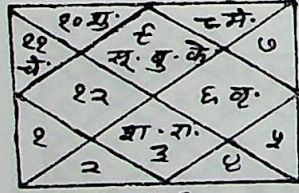 १० शु. ९ ८ मे.
११ सू. बु. के ७
चं.
१२ ६ वृ.
१ शा. रा. ५
२ ३ ४